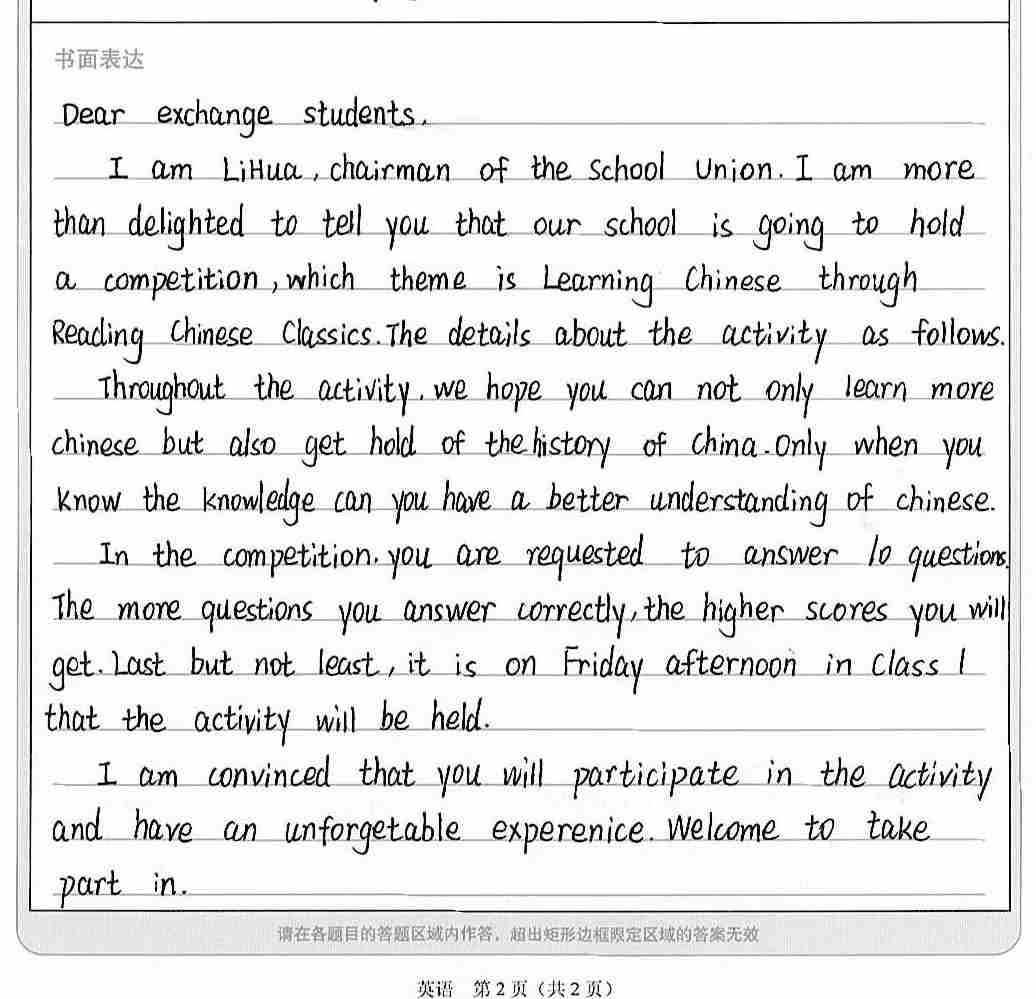 书面表达
Dear exchange students.
I am LiHua, chairman of the School Union. I am more
than delighted to tell you that our school is going to hold
a competition, which theme is Learning Chinese through
Reading Chinese Classics. The details about the activity as follows.
Throughout the activity. we hope you can not only learn more
chinese but also get hold of the history of China. Only when you
know the knowledge can you have a better understanding of chinese.
In the competition. you are requested to answer 10 questions.
The more questions you answer correctly, the higher scores you will
get. Last but not least, it is on Friday afternoon in Class 1
that the activity will be held.
I am convinced that you will participate in the activity
and have an unforgetable experenice. Welcome to take
part in.
请在各题目的答题区域内作答，超出矩形边框限定区域的答案无效
英语 第2页（共2页）